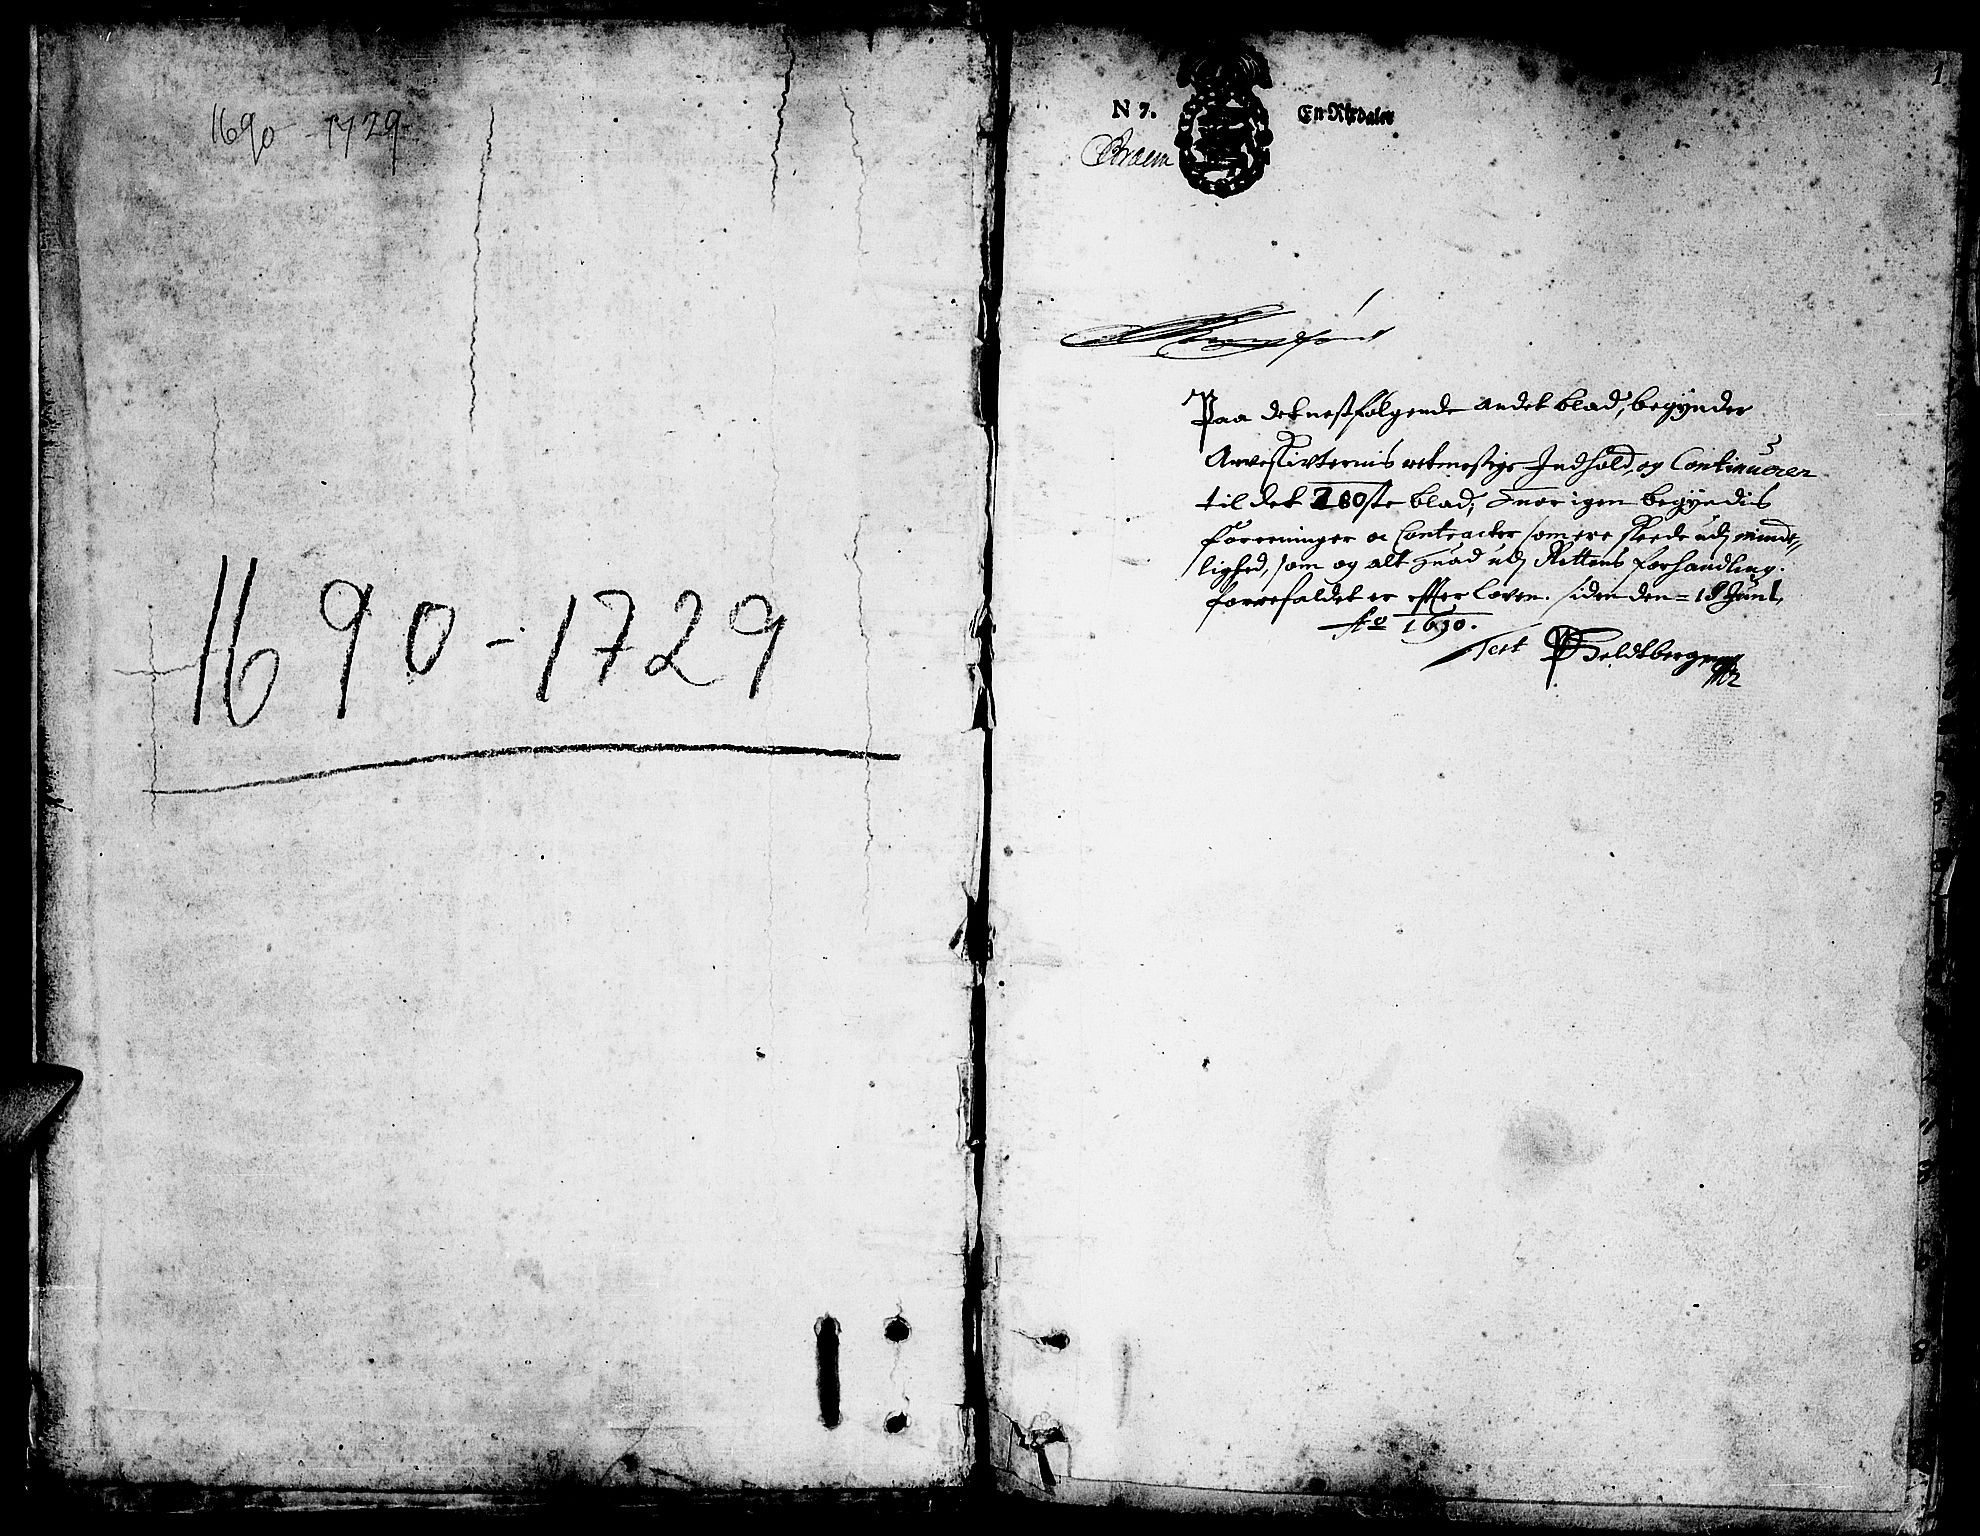 1690-1729
1690-1729
1
N 7. En Rixdaler
Braem
Paa det nestfølgende andet blad, begynder
Arveskivternis retmesige Indhold, og Continuerer
til det 280ste blad, huor igen begyndis
foreeninger oc Contracter som ere skeede udj minde-
lighed, som og alt huad udj Rettens forhandling
forrefaldet er effter loven. siden den = 18 Junl,
Ao 1690.
Test